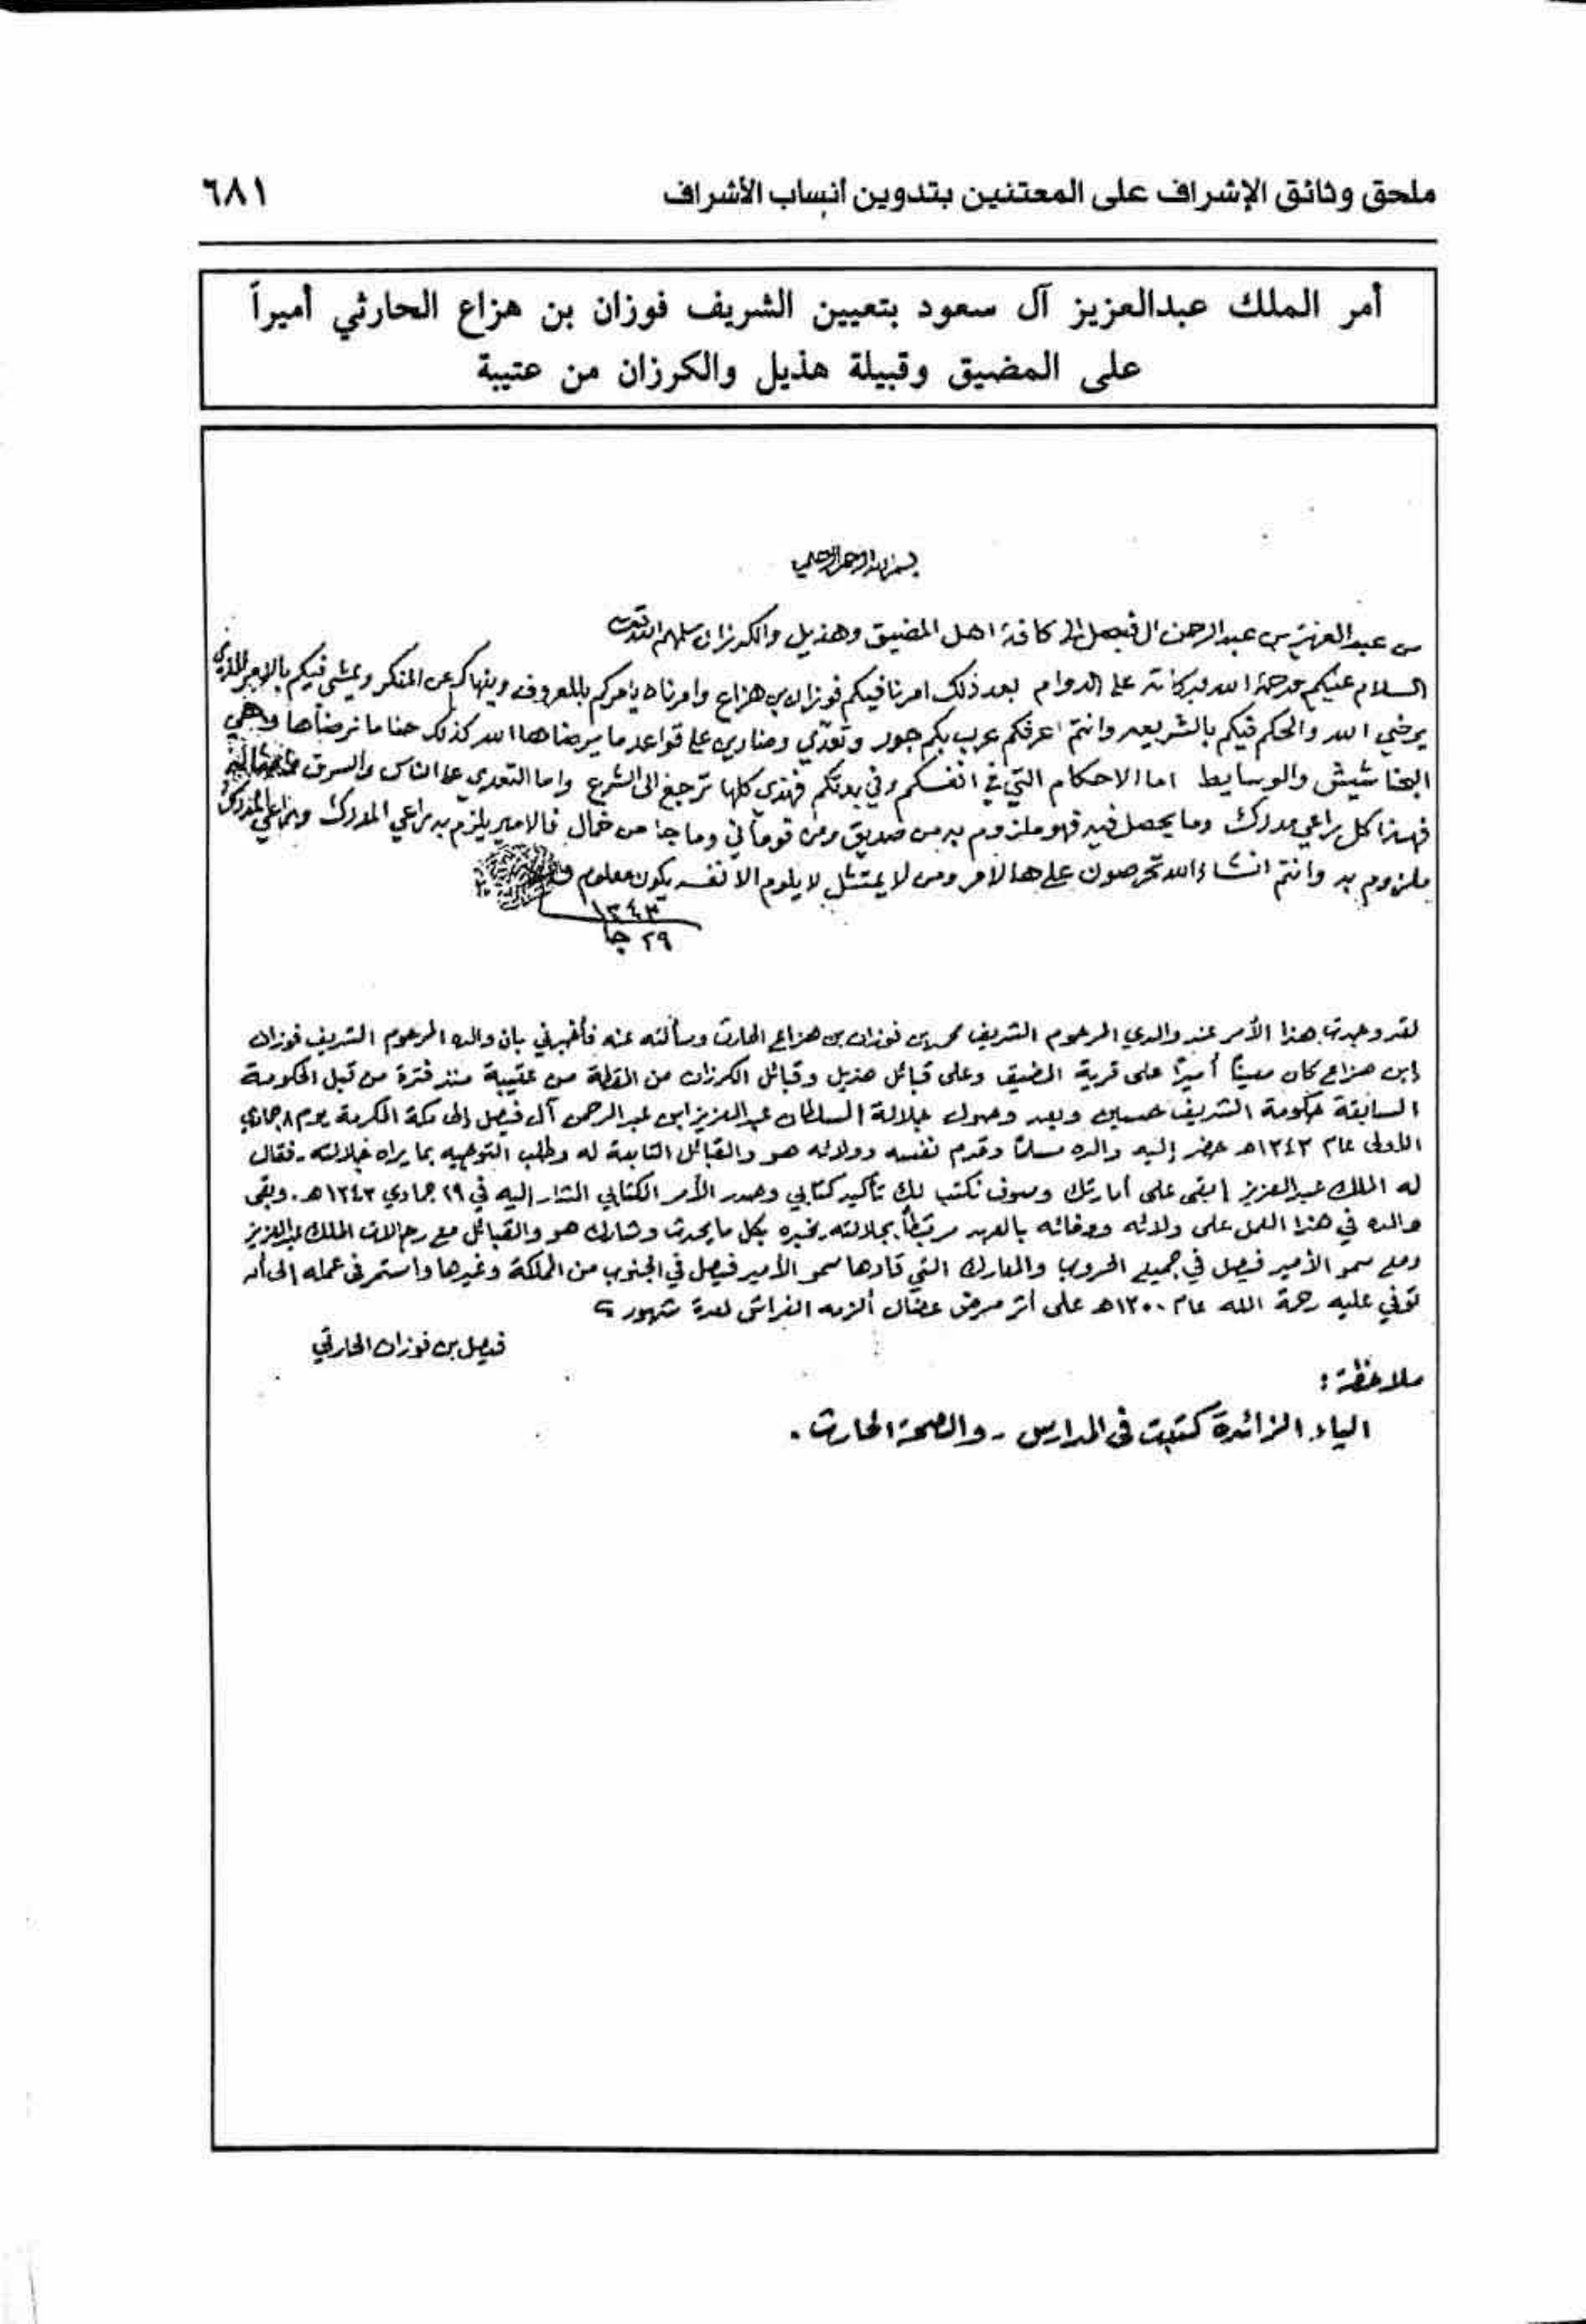 ملحق وثائق الإشراف على المعتنين بتدوين أنساب الأشراف
٦٨١
أمر الملك عبدالعزيز آل سعود بتعيين الشريف فوزان بن هزاع الحارثي أميراً
على المضيق وقبيلة هذيل والكرزان من عتيبة
بسم الله الرحمن الرحيم
من عبد العزيز بن عبد الرحمن ال فيصل الى كافة اهل المضيق وهذيل والكرزان سلمهم الله
السلام عليكم ورحمة الله وبركاته على الدوام بعد ذلك امرنا فيكم فوزان بن هزاع وامرناه يامركم بالمعروف وينهاكم عن المنكر ويمشي فيكم بالامر الذي
يرضي الله والحكم فيكم بالشريعه وانتم اعرفكم عرب بكم جور وتعدي على قواعد ما يرضاها الله كذلك حنا ما نرضاها وهي
البخاشيش والوسايط اما الاحكام التي في انفسكم وفي فهذي كلها ترجع الى الشرع واما التعدي على الناس والسرق
فهذا كل راعي مدرك وما يحصل فيه فهو ملزوم به من صديق ومن قوماني وما جا من خمال فالامير يلزم به راعي المدرك وراعي المدرك
ملزوم به وانتم انشاء الله تحرصون على هالامر ومن لا يمتثل لا يلوم الا نفسه يكون معلوم
١٣٤٣
٢٩ جا
لقد وجدت هذا الأمر عند والدي المرحوم الشريف محمد بن فوزان بن هزاع الحارث وسألته عنه فأخبرني بان والده المرحوم الشريف فوزان
إبن هزاع كان معيناً أميراً على قرية المضيق وعلى قبائل هذيل وقبائل الكرزان من المقطة من عتيبة منذ فترة من قبل الحكومة
السابقة حكومة الشريف حسين وبعد وصول جلالة السلطان عبد العزيز ابن عبد الرحمن آل فيصل إلى مكة المكرمة يوم ٨ جمادي
الأولى عام ١٣٤٣هـ حضر إليه والده مسلماً وقدم نفسه وولائه هو والقبائل التابعة له وطلب التوجيه بما يراه جلالته. فقال
له الملك عبد العزيز إبقى على أمارتك وسوف نكتب لك تأكيد كتابي وصدر الأمر الكتابي المشار إليه في ٢٩ جمادي ١٣٤٣هـ. وبقى
والده في هذا العمل على ولائه ووفائه بالعهد مرتبطاً بجلالته يخبره بكل ما يحدث وشارك هو والقبائل مع رجالات الملك عبد العزيز
ومع سمو الأمير فيصل في جميع الحروب والمعارك التي قادها سمو الأمير فيصل في الجنوب من المملكة وغيرها واستمر في عمله إلى أن
توفي عليه رحمة الله عام ١٣٥٠هـ على أثر مرض عضال ألزمه الفراش لعدة شهور
فيصل بن فوزان الحارثي
ملاحظة :
الياء الزائدة كتبت في المدارس - والصحة الحارث .